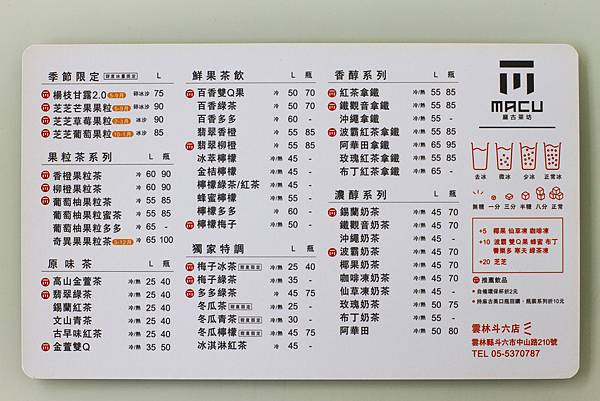 季節限定 鮮度冰量限定 L
楊枝甘露2.0 5-9月 碎冰沙 75
芝芝芒果果粒 碎冰沙 90
芝芝草莓果粒 冰沙 90
芝芝葡萄果粒 冰沙 85
果粒茶系列 L 瓶
香橙果粒茶 冷 60 90
柳橙果粒茶 冷 60 90
葡萄柚果粒茶 冷 55 85
葡萄柚果粒蜜茶 冷 55 85
葡萄柚果粒多多 冷 65 -
奇異果果粒茶 冷 65 100
原味茶 L 瓶
高山金萱茶 冷/熱 25 40
翡翠綠茶 冷/熱 25 40
錫蘭紅茶 冷/熱 25 40
文山青茶 冷/熱 25 40
古早味紅茶 冷/熱 25 40
金萱雙Q 冷/熱 35 50
鮮果茶飲 L 瓶
百香雙Q果 冷 50 70
百香綠茶 冷 50 70
百香多多 冷 60 -
翡翠香橙 冷 55 85
翡翠柳橙 冷 55 85
冰萃檸檬 冷/熱 45 -
金桔檸檬 冷/熱 45 -
檸檬綠茶/紅茶 冷/熱 45 -
蜂蜜檸檬 冷/熱 55 -
檸檬多多 冷 60 -
檸檬梅子 冷/熱 50 -
獨家特調 L 瓶
梅子冰茶 限量限定 冷/熱 25 40
梅子綠茶 冷/熱 50 -
多多綠茶 冷 45 75
冬瓜茶 限量限定 冷/熱 30 -
冬瓜青茶 限量限定 冷/熱 30 -
冬瓜檸檬 限量限定 冷/熱 45 75
冰淇淋紅茶 冷 45 -
香醇系列 L 瓶
紅茶拿鐵 冷/熱 55 85
鐵觀音拿鐵 冷/熱 55 85
沖繩拿鐵 冷/熱 55 -
波霸紅茶拿鐵 冷/熱 55 85
阿華田拿鐵 冷/熱 65 95
玫瑰紅茶拿鐵 冷/熱 55 85
布丁紅茶拿鐵 冷/熱 65 -
濃醇系列 L 瓶
錫蘭奶茶 冷/熱 45 70
鐵觀音奶茶 冷/熱 45 70
沖繩奶茶 冷/熱 45 -
波霸奶茶 冷/熱 45 70
椰果奶茶 冷/熱 45 70
咖啡凍奶茶 冷/熱 45 -
仙草凍奶茶 冷/熱 45 -
玫瑰奶茶 冷/熱 50 75
布丁奶茶 冷/熱 55 -
阿華田 冷/熱 50 80
MACU
麻古茶坊
去冰 微冰 少冰 正常冰
無糖 一分 三分 半糖 八分 正常
+5 椰果 仙草凍 咖啡凍
+10 波霸 雙Q果 蜂蜜 布丁
養樂多 寒天 綠茶凍
+20 芝芝
推薦飲品
自備環保杯折2元
持麻古美口瓶回購，瓶裝系列折10元
雲林斗六店
雲林縣斗六市中山路210號
TEL 05-5370787